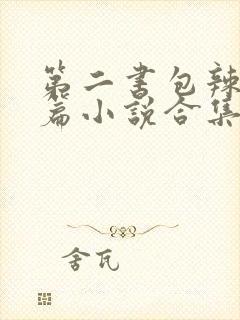 第二书包辣
篇小说合集
舍瓦